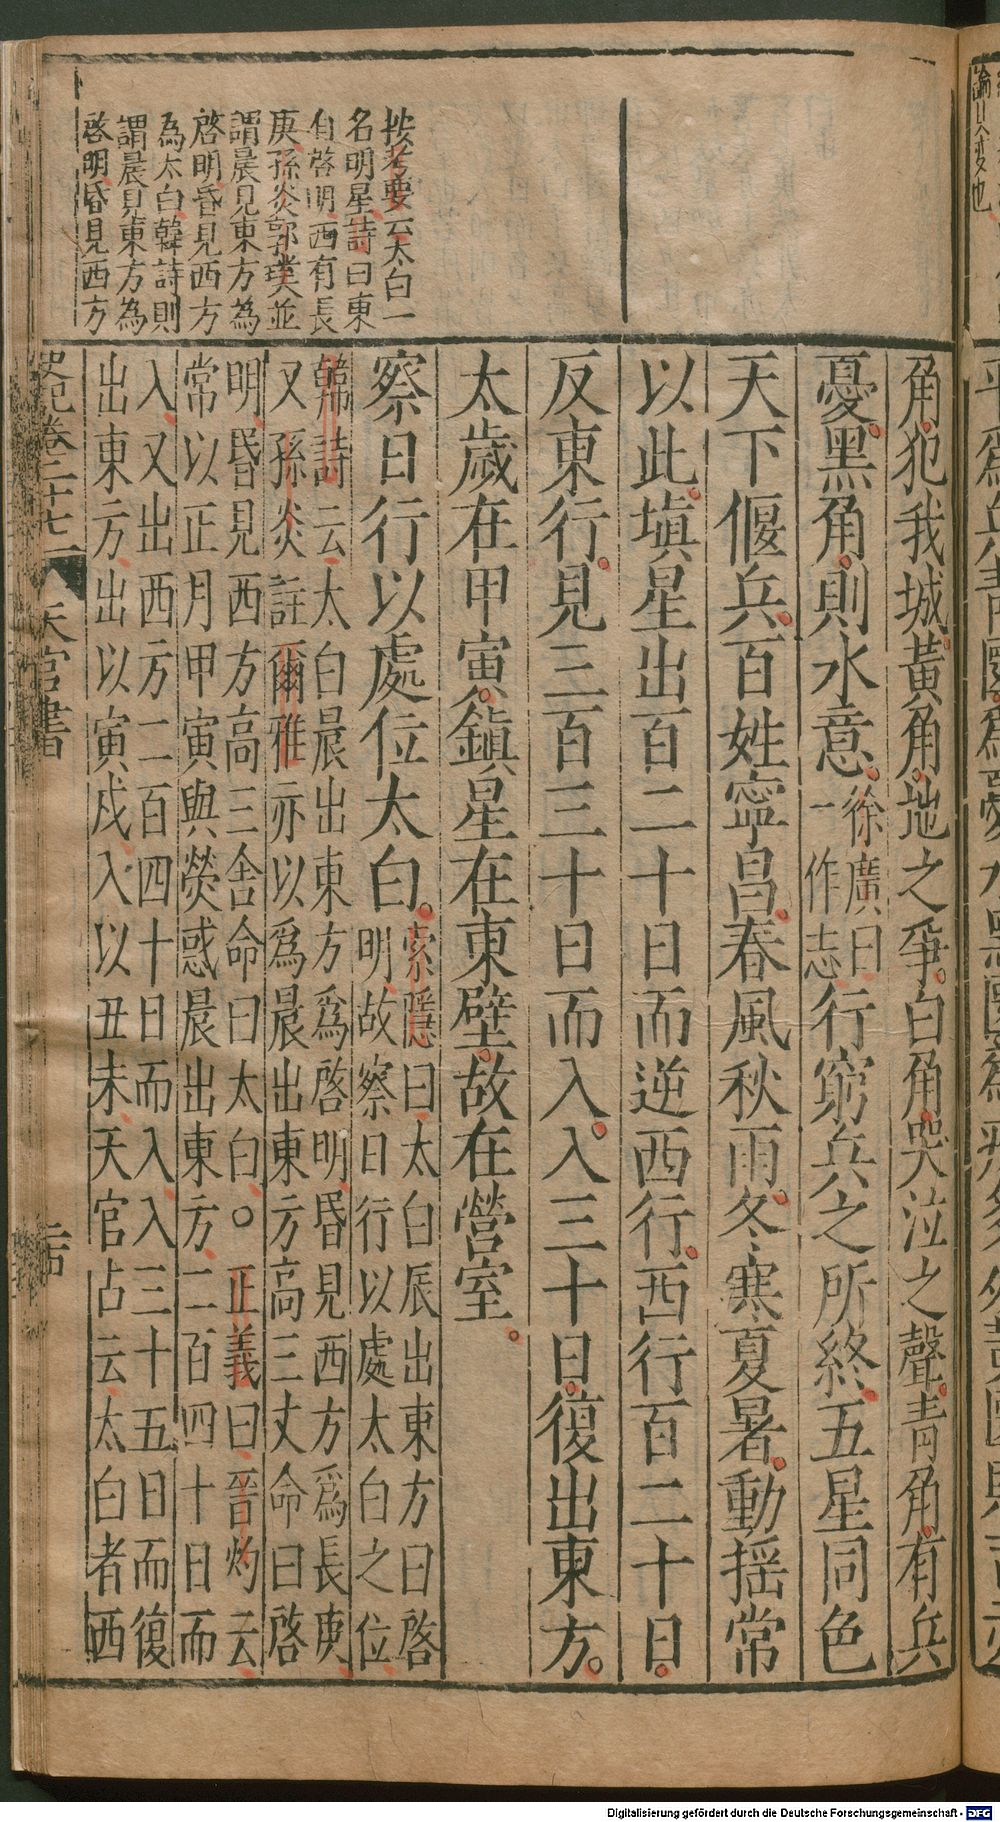 按考要云太白一
名明星詩曰東
有啓明西有長
庚孫炎郭璞並
謂晨見東方為
啓明昏見西方
為太白韓詩則
謂晨見東方為
啓明昏見西方
角犯我城黃角地之爭白角哭泣之聲青角有兵
憂黑角則水意徐廣曰一作志行窮兵之所終五星同色
天下偃兵百姓寧昌春風秋雨冬寒夏暑動揺常
以此塡星出百二十日而逆西行西行百二十日
反東行見三百三十日而入入三十日復出東方
太歲在甲寅鎭星在東壁故在營室
察日行以處位太白索隱曰太白辰出東方曰啓
明故察日行以處太白之位
韓詩云太白晨出東方爲啓明昏見西方爲長庚
又孫炎註爾雅亦以爲晨出東方高三丈命曰啓
明昏見西方高三舍命曰太白○正義曰晉灼云
常以正月甲寅與熒惑晨出東方二百四十日而
入又出西方二百四十日而入入三十五日而復
出東方出以寅戍入以丑未天官占云太白者西
史記卷二十七 天官書
論其变也
Digitalisierung gefördert durch die Deutsche Forschungsgemeinschaft - DFG